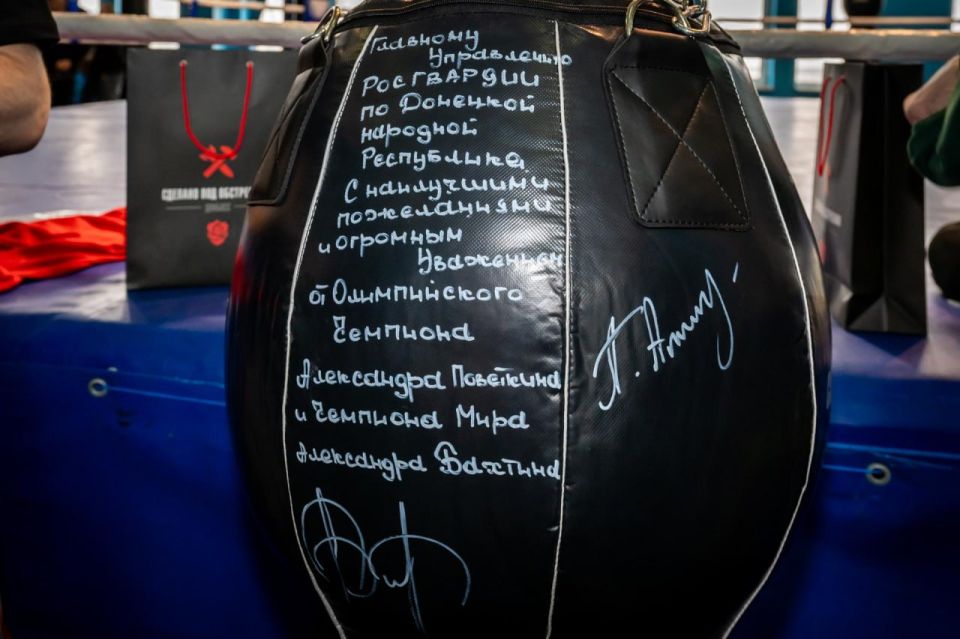 Главному
Управлению
РОСГВАРДИИ
по Донецкой
народной
Республике
С наилучшими
пожеланиями
и огромным
Уважением
от Олимпийского
Чемпиона
Александра Поветкина
и Чемпиона Мира
Александра Бахтина
СДЕЛАНО ПОД